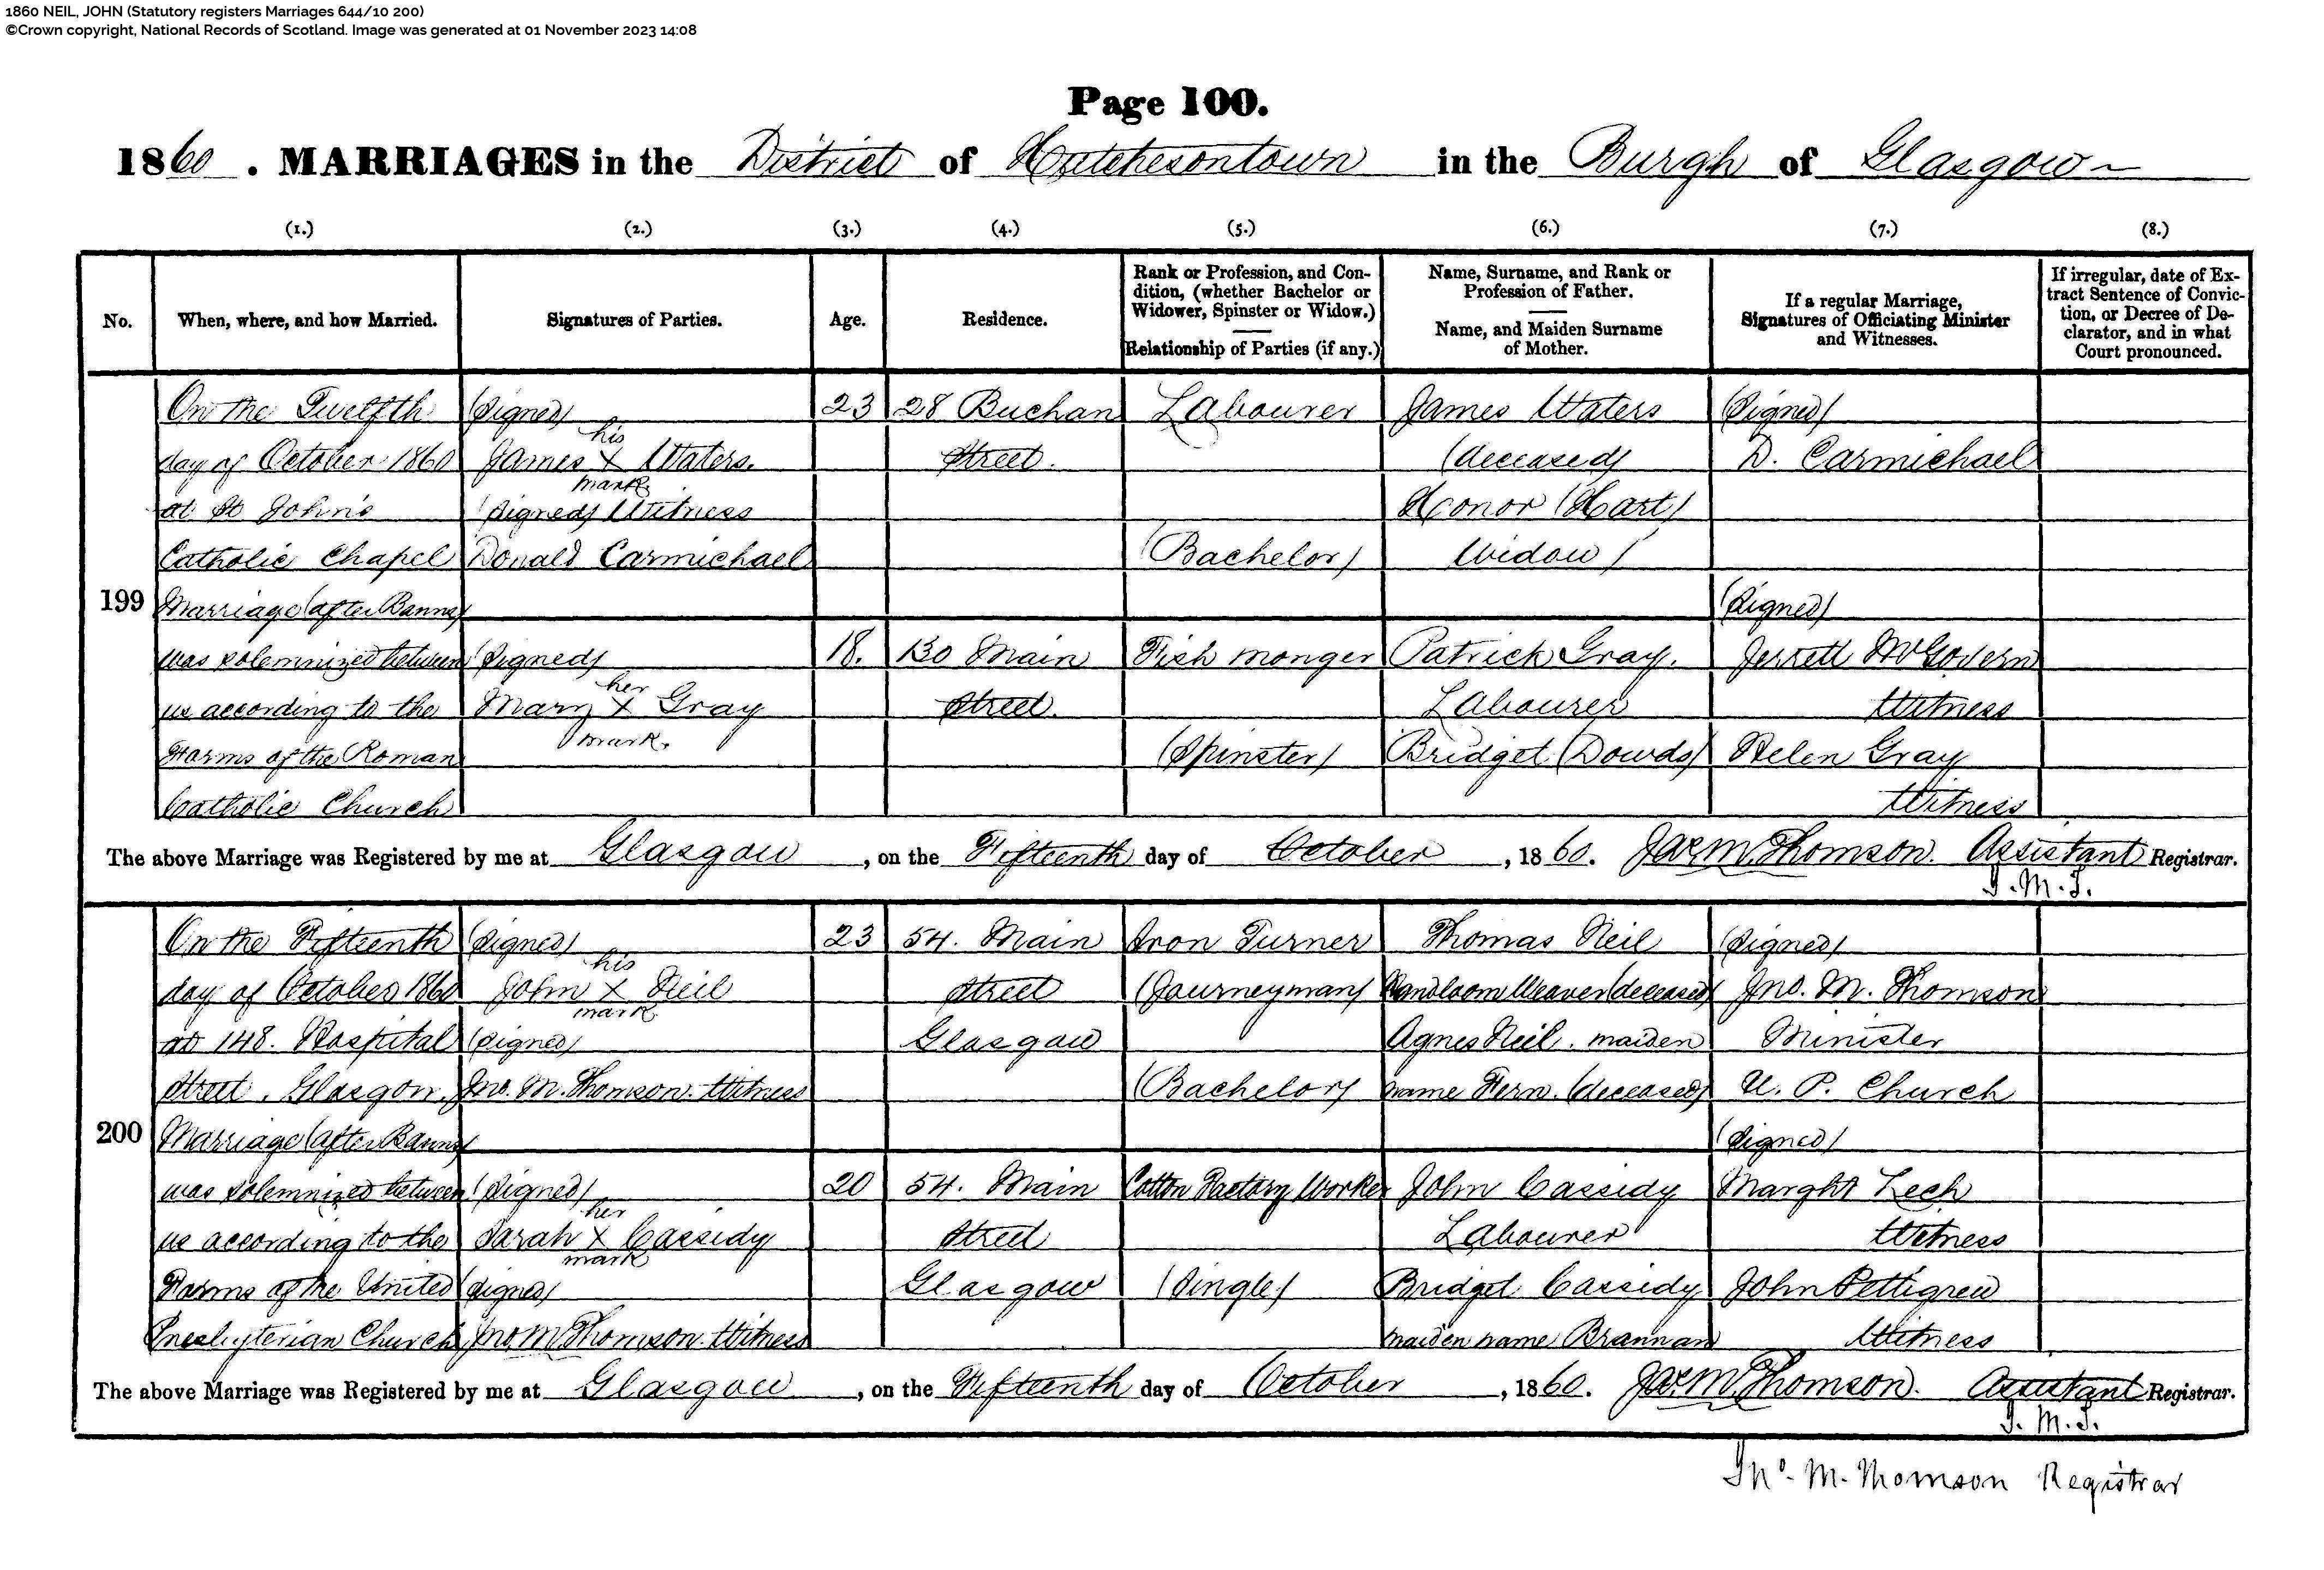 1860 NEIL, JOHN (Statutory registers Marriages 644/10 200)
©Crown copyright, National Records of Scotland. Image was generated at 01 November 2023 14:08
Page 100.
1860. MARRIAGES in the District of Hutchesontown in the Burgh of Glasgow
(1.) (2.) (3.) (4.) (5.) (6.) (7.) (8.)
No.
When, where, and how Married.
Signatures of Parties.
Age.
Residence.
Rank or Profession, and Con-
dition, (whether Bachelor or
Widower, Spinster or Widow.)
Relationship of Parties (if any.)
Name, Surname, and Rank or
Profession of Father.
Name, and Maiden Surname
of Mother.
If a regular Marriage,
Signatures of Officiating Minister
and Witnesses.
If irregular, date of Ex-
tract Sentence of Convic-
tion, or Decree of De-
clarator, and in what
Court pronounced.
199
On the Twelfth
day of October 1860
at St John's
Catholic Chapel
Marriage (after Banns)
was solemnized between
us according to the
Forms of the Roman
Catholic Church
(Signed)
his
James X Waters.
mark
(Signed) Witness
Donald Carmichael
(Signed)
her
Mary X Gray
mark.
23
18.
28 Buchan
Street.
130 Main
Street.
Labourer
(Bachelor)
Fish monger
(Spinster)
James Waters
(deceased)
Honor (Hart)
Widow /
Patrick Gray.
Labourer
Bridget (Dowds)
(Signed)
D. Carmichael
(Signed)
Jerrett McGovern
Witness
Helen Gray
Witness
The above Marriage was Registered by me at Glasgow, on the Fifteenth day of October, 1860. Jas M. Thomson. Assistant Registrar.
J. M. T.
200
On the Fifteenth
day of October 1860
at 148. Hospital
Street. Glasgow.
Marriage (after Banns)
was solemnized between
us according to the
Forms of the United
Presbyterian Church
(Signed)
his
John X Neil
mark
(Signed)
Jno. M. Thomson. Witness
(Signed)
her
Sarah X Cassidy
mark
(Signed)
Jno. M Thomson. Witness
23
20
54. Main
Street
Glasgow
54. Main
Street
Glasgow
Iron Turner
(Journeyman)
(Bachelor)
Cotton Factory Worker
(Single)
Thomas Neil
Handloom Weaver (deceased)
Agnes Neil. maiden
name Fern. (deceased)
John Cassidy
Labourer
Bridget Cassidy
maiden name Brannan
(Signed)
Jno. M. Thomson
Minister
U. P. Church
(Signed)
Marght Lech
Witness
John Pettigrew
Witness
The above Marriage was Registered by me at Glasgow, on the Fifteenth day of October, 1860. Jas. M. Thomson. Assistant Registrar.
J. M. T.
Jno. M. Thomson Registrar